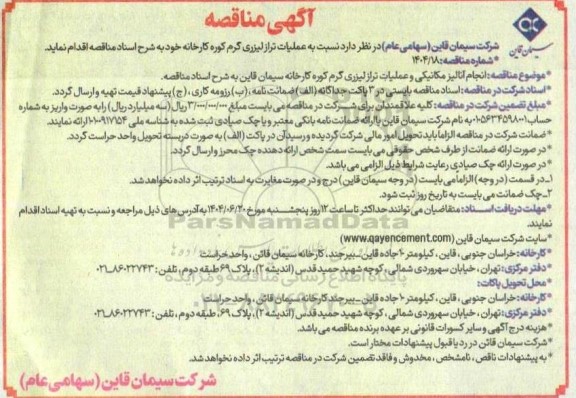 آگهی مناقصه
سیمان قاین
شرکت سیمان قاین (سهامی عام) در نظر دارد نسبت به عملیات تراز لیزری گرم کوره کارخانه خود به شرح اسناد مناقصه اقدام نماید.
*شماره مناقصه: ۱۴۰۴/۱۸
*موضوع مناقصه: انجام آنالیز مکانیکی و عملیات تراز لیزری گرم کوره کارخانه سیمان قاین به شرح اسناد مناقصه.
*اسناد شرکت در مناقصه: اسناد مناقصه بایستی در ۳ پاکت جداگانه (الف) ضمانت نامه، (ب) رزومه کاری، (ج) پیشنهاد قیمت تهیه و ارسال گردد.
*مبلغ تضمین شرکت در مناقصه: کلیه علاقمندان برای شرکت در مناقصه می بایست مبلغ ۳/۰۰۰/۰۰۰/۰۰۰ ریال (سه میلیارد ریال) را به صورت واریز به شماره
به نام شرکت سیمان قاین یا ارائه ضمانت نامه بانکی معتبر و یا چک صیادی ثبت شده به شناسه ملی ارائه نمایند.
*ضمانت شرکت در مناقصه الزاماً باید تحویل امور مالی شرکت گردیده و رسید آن در پاکت (الف) به صورت دربسته تحویل واحد حراست گردد.
*در صورت ارائه ضمانت از طرف شخص حقوقی می بایست سمت شخص ارائه دهنده چک محرز و ارسال گردد.
*در صورت ارائه چک صیادی رعایت شرایط ذیل الزامی می باشد.
۱_در قسمت (در وجه) الزاماً می بایست (در وجه سیمان قاین) درج و در صورت مغایرت به اسناد ترتیب اثر داده نخواهد شد.
۲_چک ضمانت می بایست به تاریخ روز ثبت شود.
*مهلت دریافت اسناد: متقاضیان می توانند حداکثر تا ساعت ۱۲ روز پنجشنبه مورخ ۱۴۰۴/۰۶/۲۰ به آدرس های ذیل مراجعه و نسبت به تهیه اسناد اقدام
نمایند.
ParsNamadData
*سایت شرکت سیمان قاین (www.qayencement.com)
*کارخانه: خراسان جنوبی، قاین، کیلومتر ۱۰ جاده قاین _ بیرجند، کارخانه سیمان قائن، واحد حراست
*دفتر مرکزی: تهران، خیابان سهروردی شمالی، کوچه شهید حمید قدس (اندیشه ۲)، پلاک ۶۹ طبقه دوم، تلفن: ۸۶۰۲۲۷۴۳_۰۲۱
پایگاه اطلاع رسانی مناقصه و مزایده
*محل تحویل پاکات:
*کارخانه: خراسان جنوبی، قاین، کیلومتر ۱۰ جاده قاین _ بیرجند کارخانه سیمان قائن، واحد حراست
*دفتر مرکزی: تهران، خیابان سهروردی شمالی، کوچه شهید حمید قدس (اندیشه ۲)، پلاک ۶۹، طبقه دوم، تلفن: ۸۶۰۲۲۷۴۳_۰۲۱
*هزینه درج آگهی و سایر کسورات قانونی بر عهده برنده مناقصه می باشد.
*شرکت سیمان قائن در رد یا قبول پیشنهادات مختار است.
*به پیشنهادات ناقص، نامشخص، مخدوش و فاقد تضمین شرکت در مناقصه ترتیب اثر داده نخواهد شد.
شرکت سیمان قاین (سهامی عام)